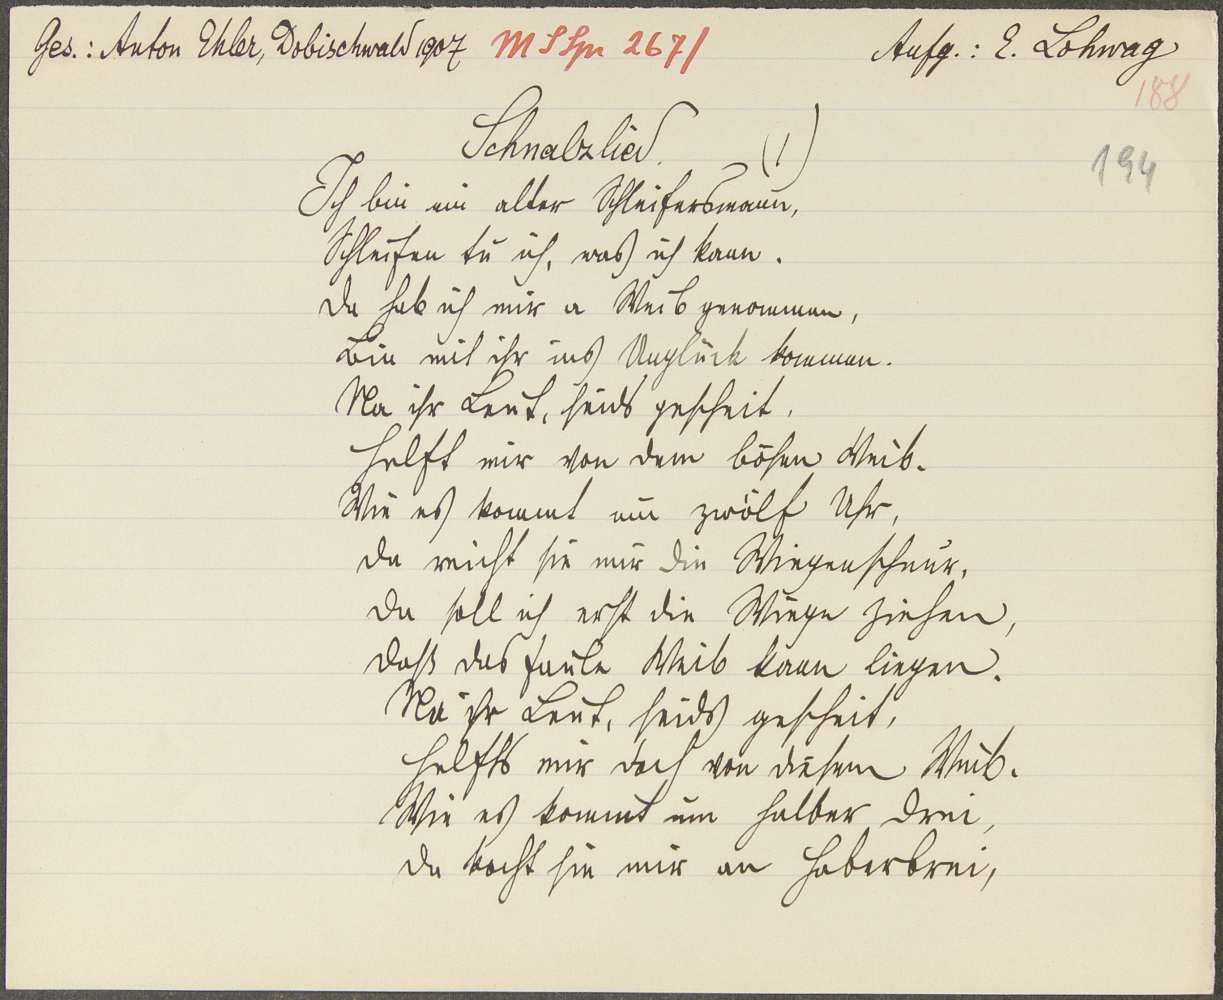 Ges.: Anton Ehler, Dobischwald 1907 Aufg.: E. Lohwag
188
194
Schnalzlied. (1)
Ich bin ein alter Schleifersmann,
Schleifen tu ich, was ich kann.
Da hab ich mir a Weib genommen,
Bin mit ihr ins Unglück kommen.
Na ihr Leut, seids gescheit,
Helft mir von dem bösen Weib.
Wie es kommt um zwölf Uhr,
Da reicht sie mir die Wiegenschnur,
Da soll ich erst die Wiege ziehen,
Daß das faule Weib kann liegen.
Na ihr Leut, seids gescheit,
Helfts mir doch von diesem Weib.
Wie es kommt um halber Drei,
Da kocht sie mir an Haberbrei,